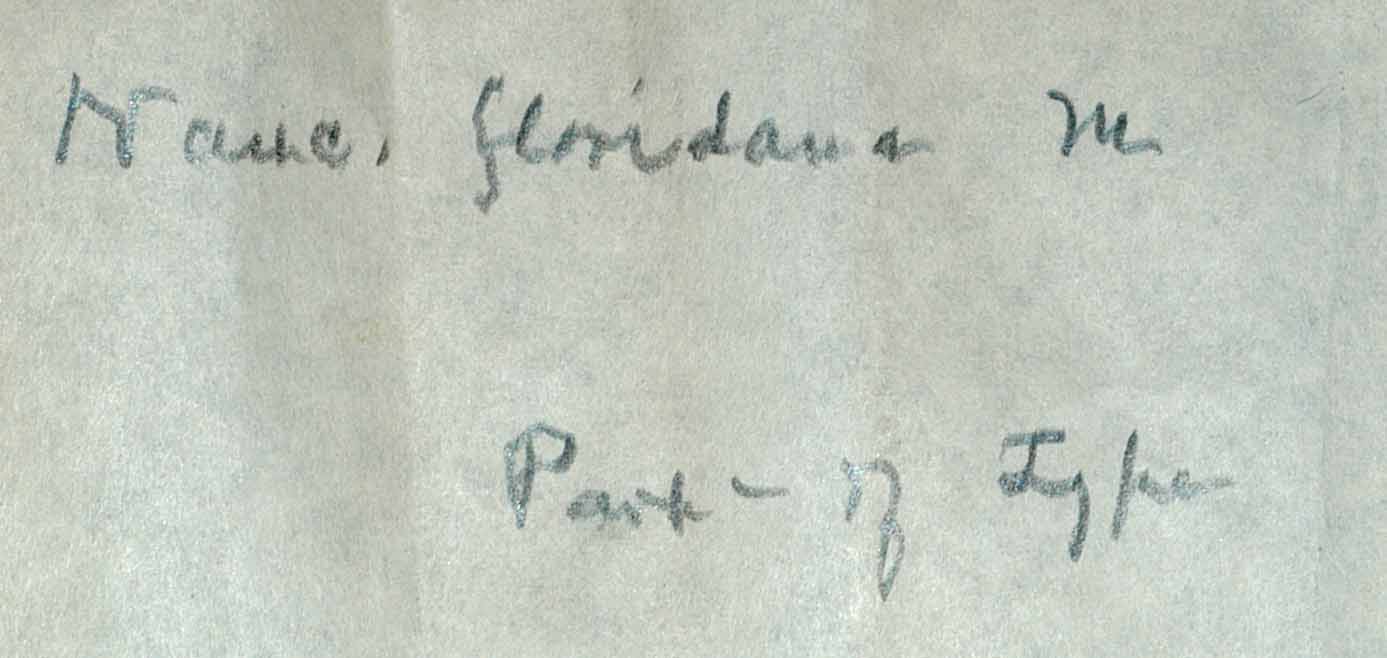 Nauc. floridana M
Part of Type